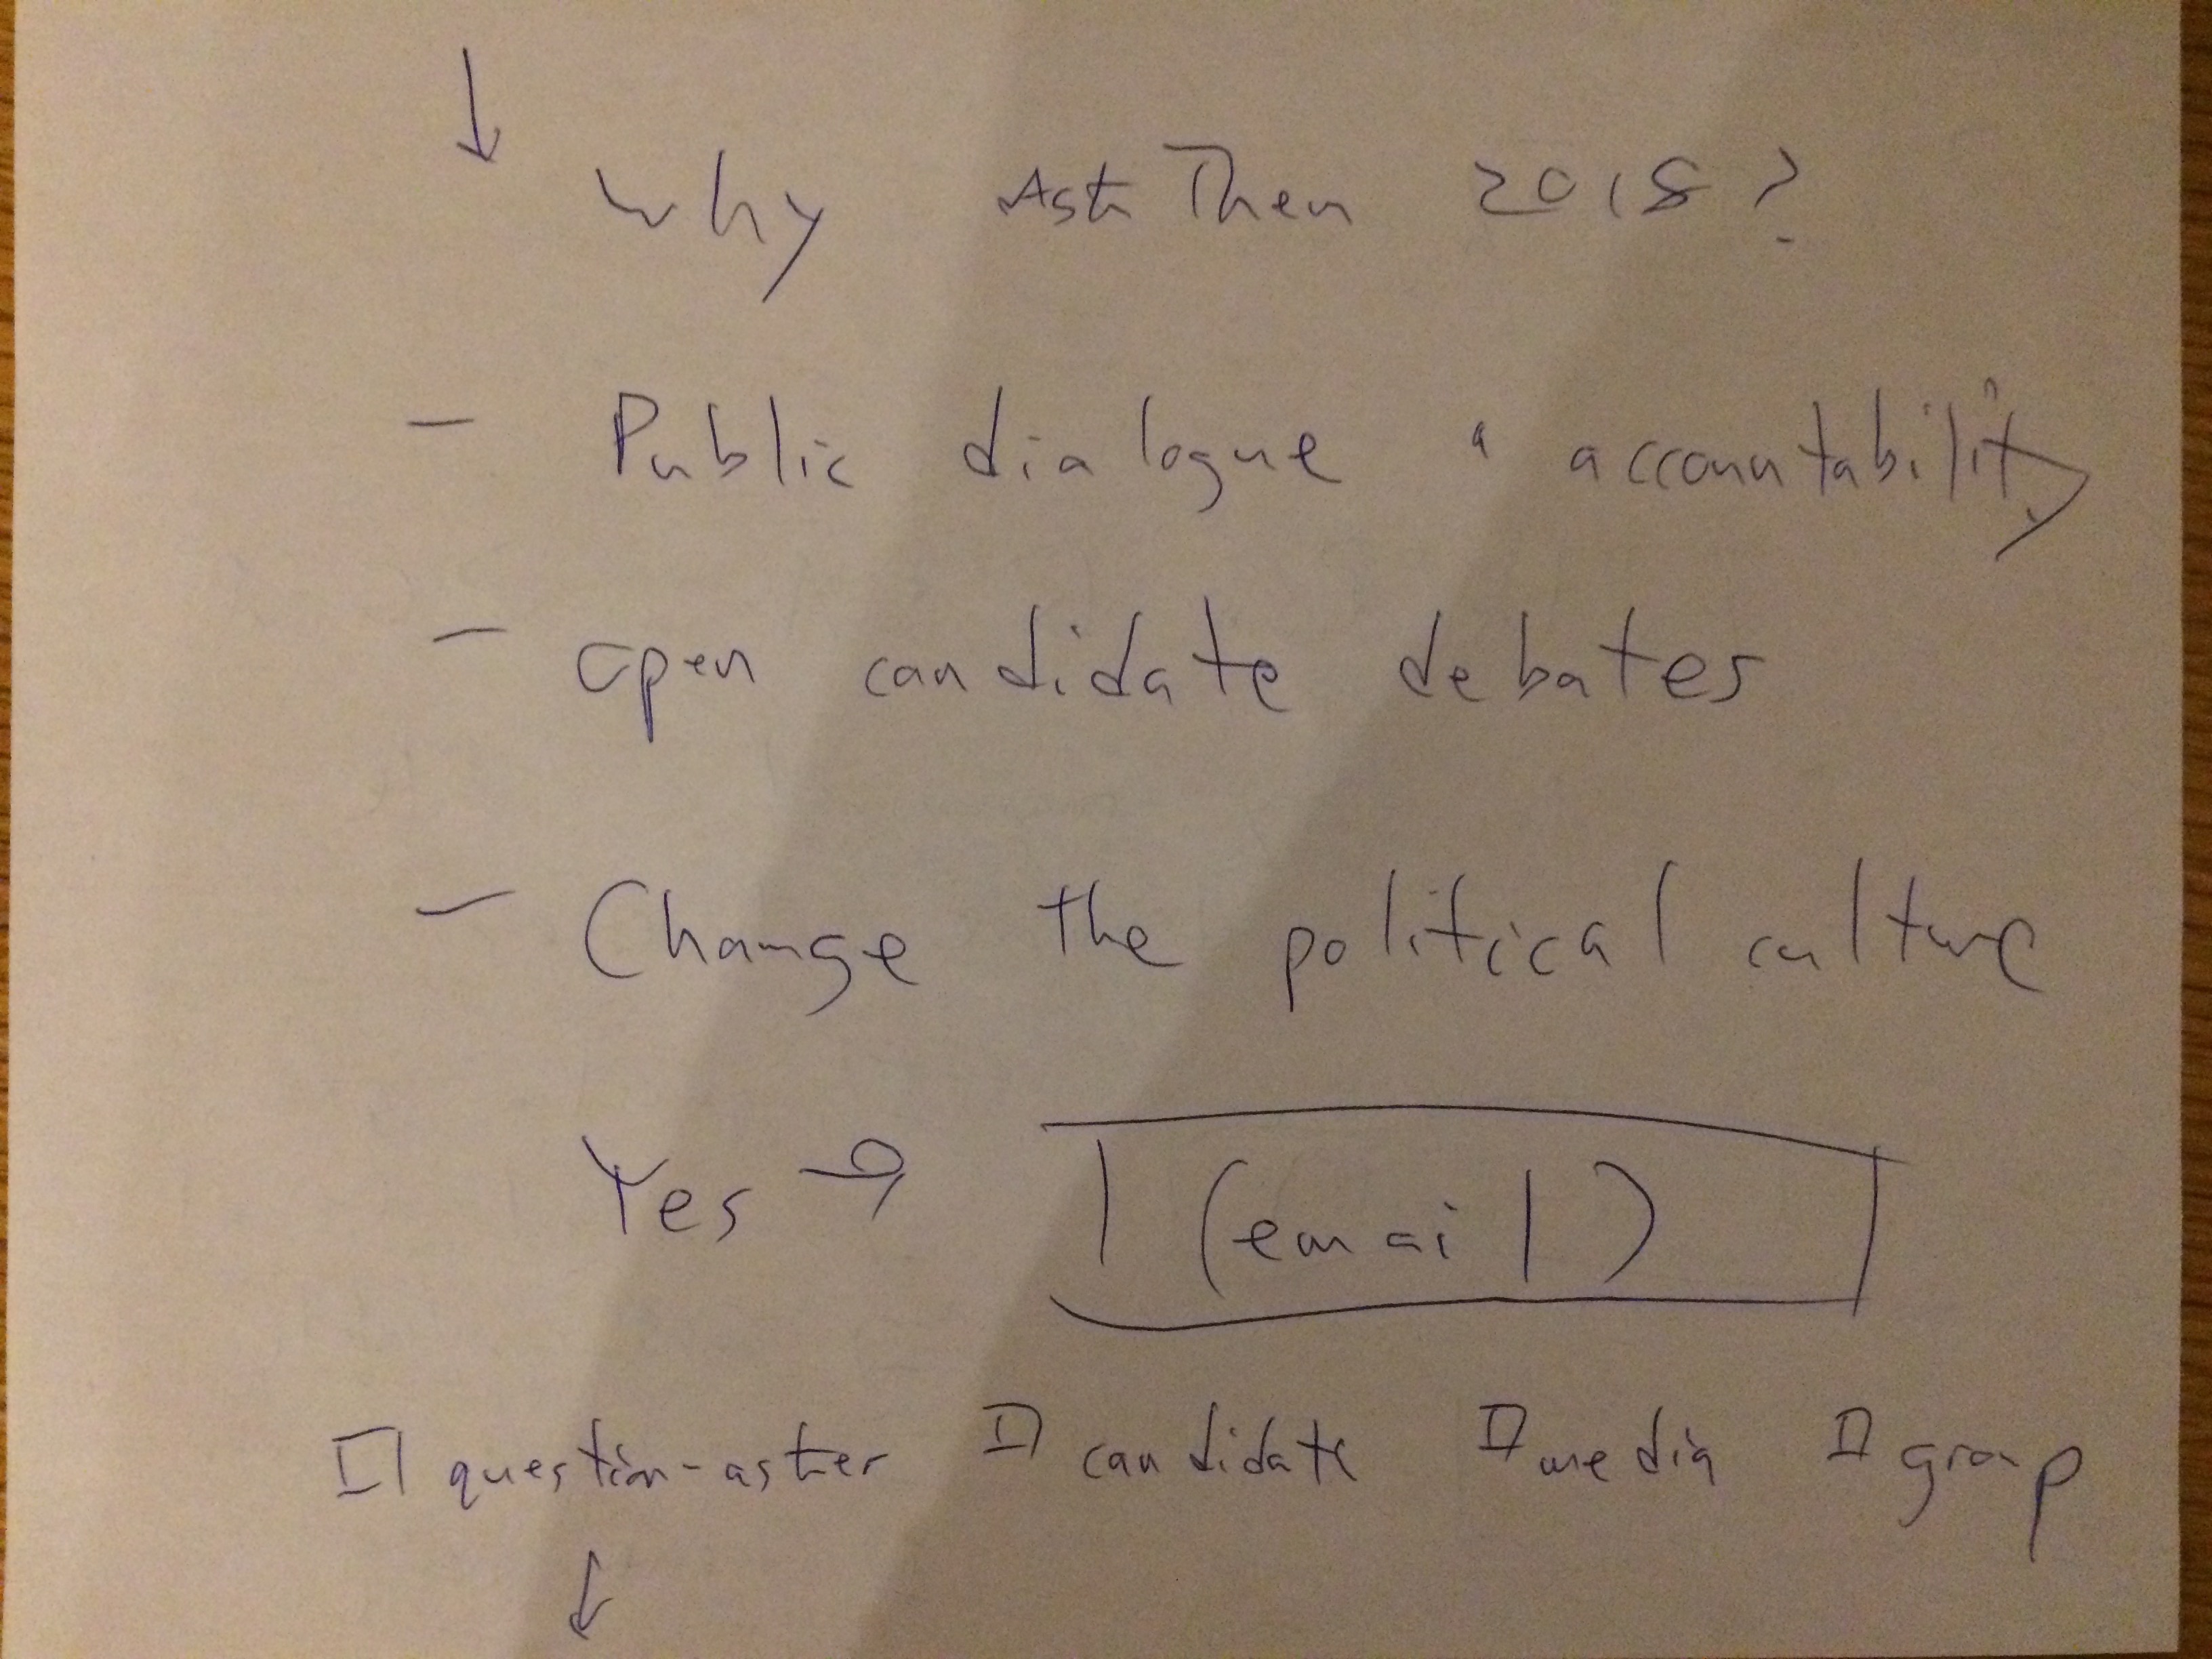 ↓
Why AskThem 2018?
- Public dialogue & accountability
- open candidate debates
- Change the political culture
Yes → (email)
□ question-asker □ candidate □ media □ group
↓